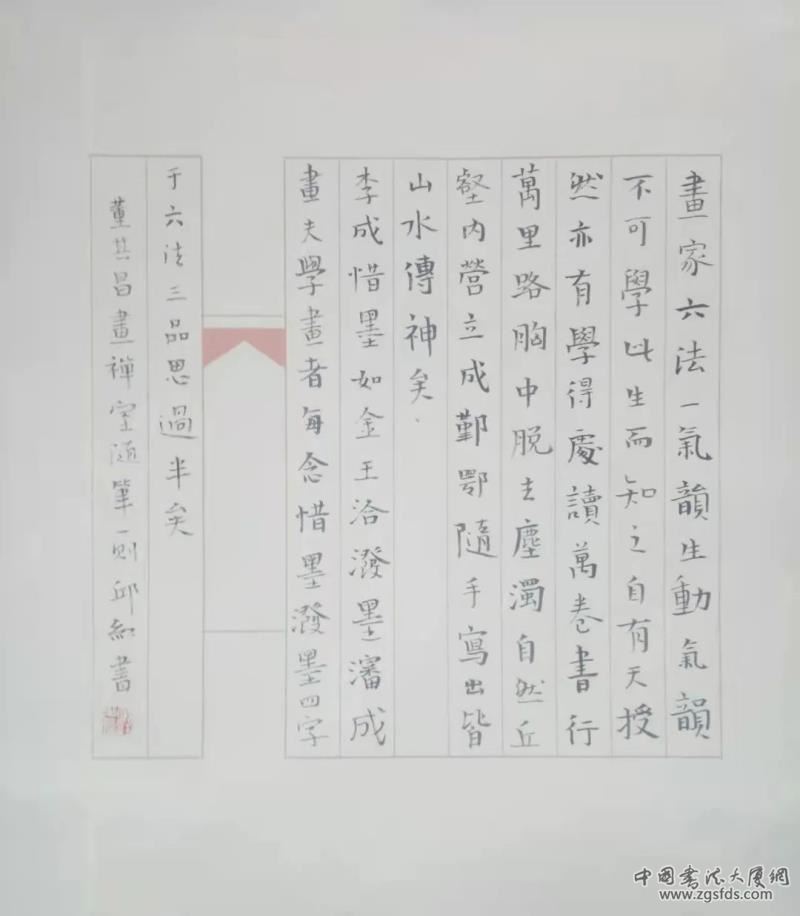 畫家六法一氣韻生動氣韻
不可學此生而知之自有天授
然亦有學得處讀萬卷書行
萬里路胸中脱去塵濁自然丘
壑内營立成鄞鄂隨手寫出皆
山水傳神矣
李成惜墨如金王洽潑墨瀋成
畫夫學畫者每念惜墨潑墨四字
于六法三品思過半矣
董其昌畫禅室随筆一则邱書
中国書法大廈網
www.zgsfds.com